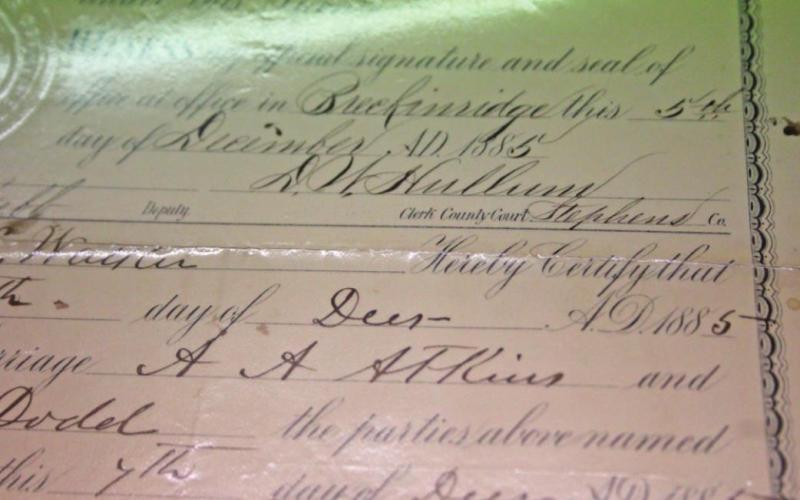 under
WITNESS my official signature and seal of
office at office in Breckinridge this 5th
day of December A.D. 1885
D. W. Hullum
Deputy Clerk County Court Stephens Co.
Walker Hereby Certify that
th day of Decr A.D. 1885
rriage A A Atkins and
Dodd the parties above named
this 7th day of Decr A.D. 188